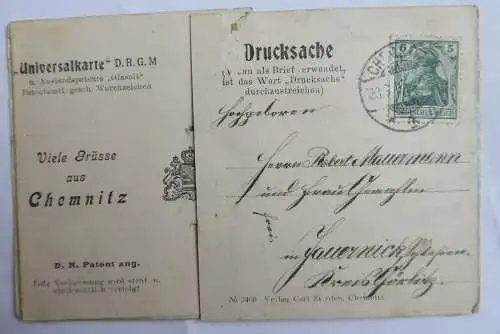 „Universalkarte" D.R.G.M
u. Auslandspatente
Patentamtl. gesch. Warenzeichen
Viele Grüsse
aus
Chemnitz
D. R. Patent ang.
Jede Nachahmung wird straf- u.
zivilrechtlich verfolgt
Drucksache
(Wenn als Brief verwendet,
ist das Wort „Drucksache"
durchzustreichen)
5 5
Hochgeboren
Herrn Robert Mauermann
und Frau Gemahlin
frei
in Jauernick Schlesien
Kreis Görlitz.
№ 2400 Verlag Carl Chemnitz